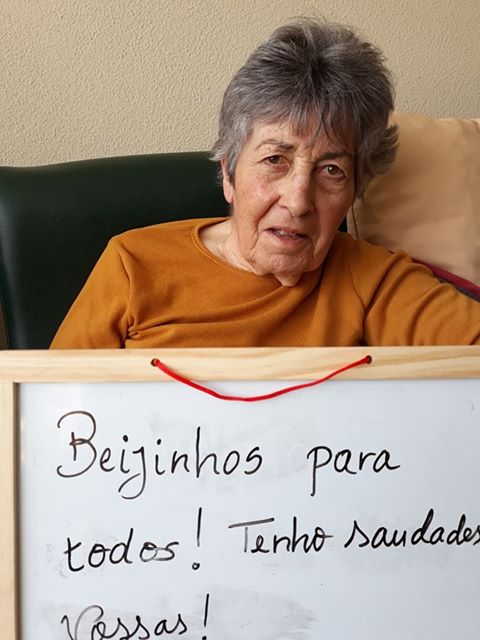 Beijinhos para
todos! Tenho saudades
Vossas!